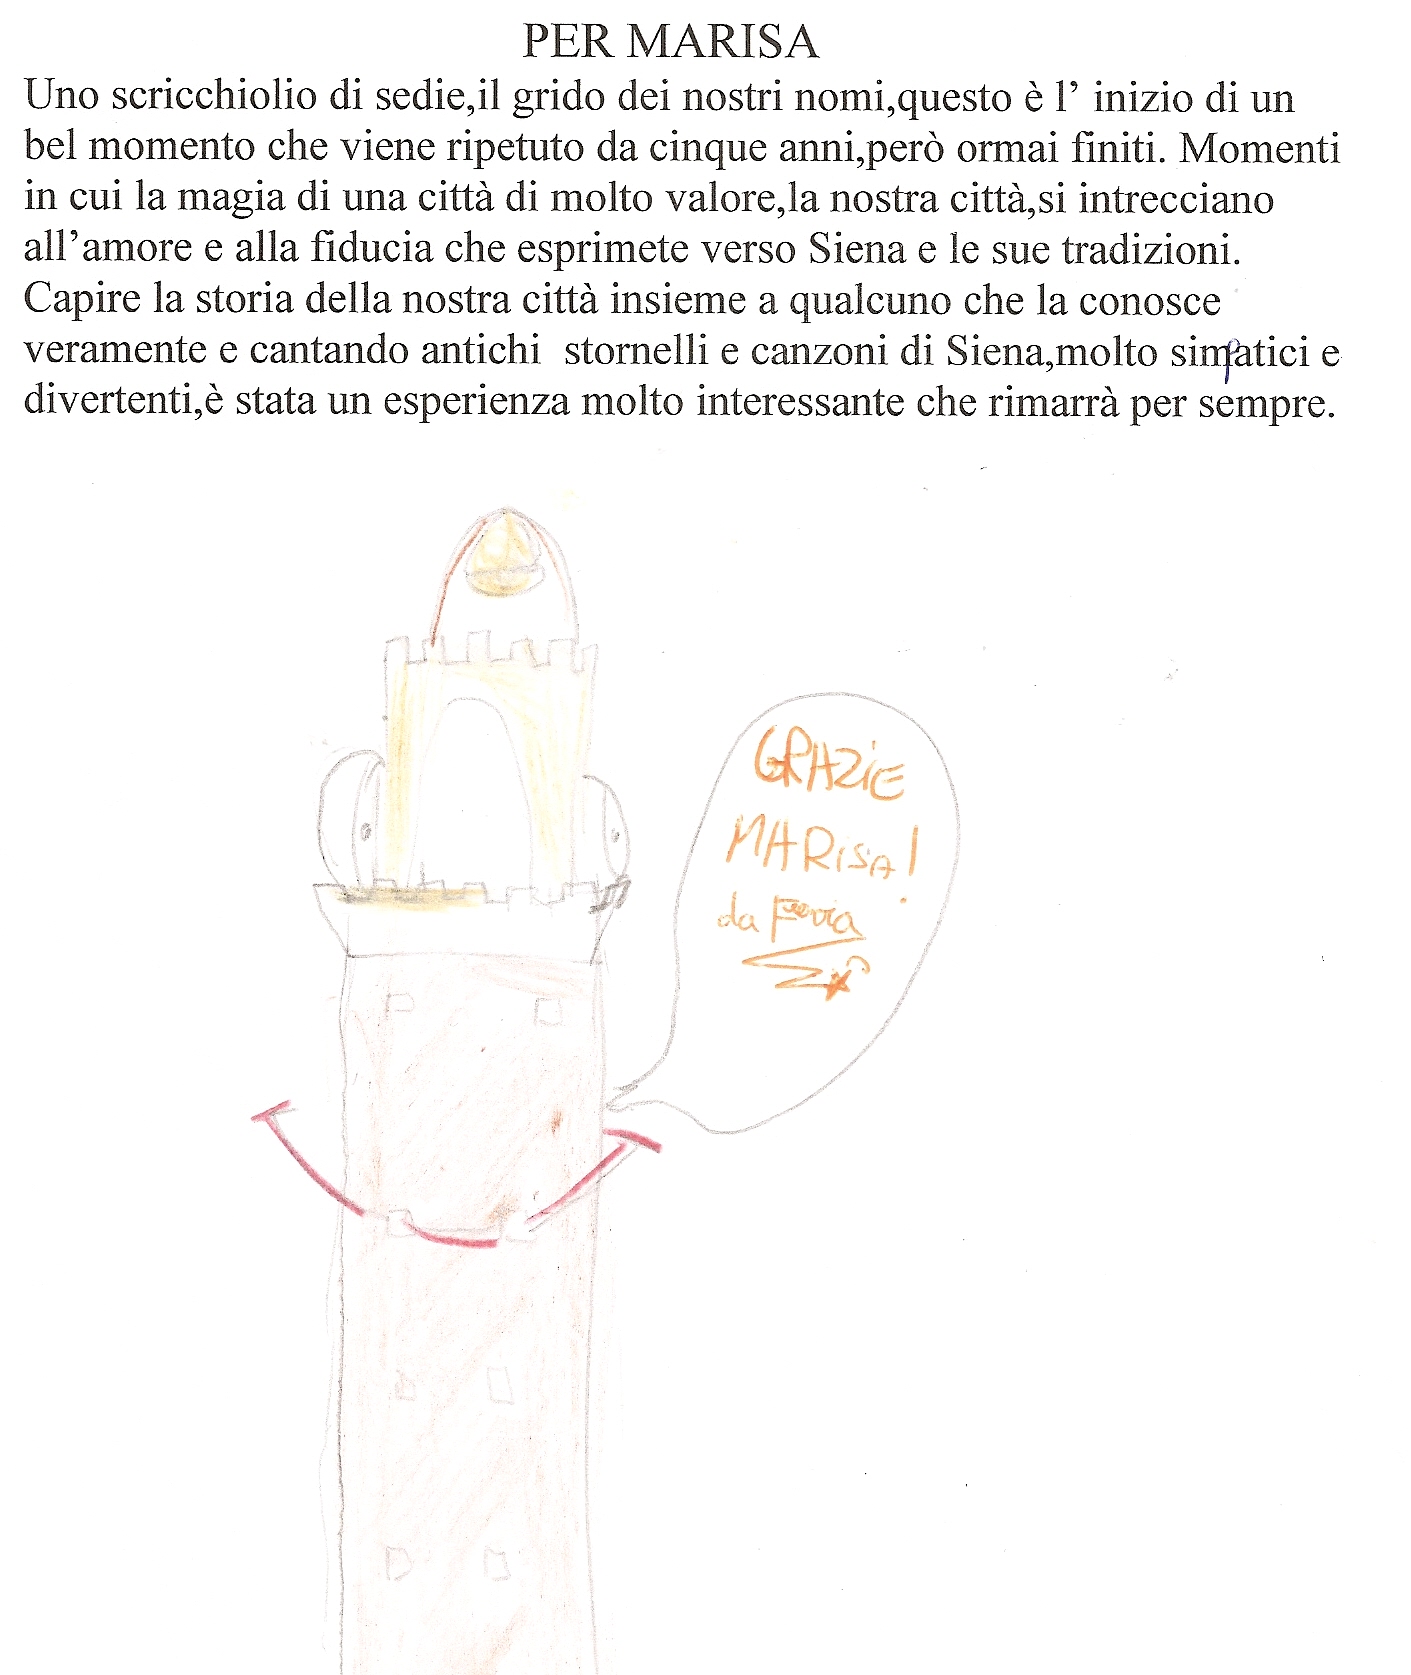 PER MARISA
Uno scricchiolio di sedie,il grido dei nostri nomi,questo è l’ inizio di un
bel momento che viene ripetuto da cinque anni,però ormai finiti. Momenti
in cui la magia di una città di molto valore,la nostra città,si intrecciano
all’amore e alla fiducia che esprimete verso Siena e le sue tradizioni.
Capire la storia della nostra città insieme a qualcuno che la conosce
veramente e cantando antichi  stornelli e canzoni di Siena,molto simpatici e
divertenti,è stata un esperienza molto interessante che rimarrà per sempre.
GRAZIE
MARISA!
da